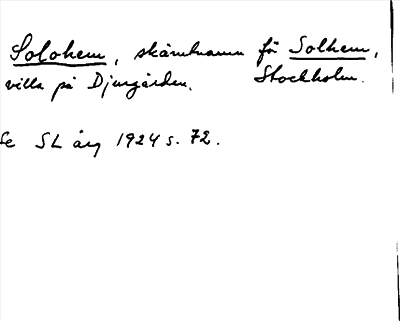 Solohem, skämtnamn på Solhem,
villa på Djurgården. Stockholm.
se SL årg 1924 s. 72.